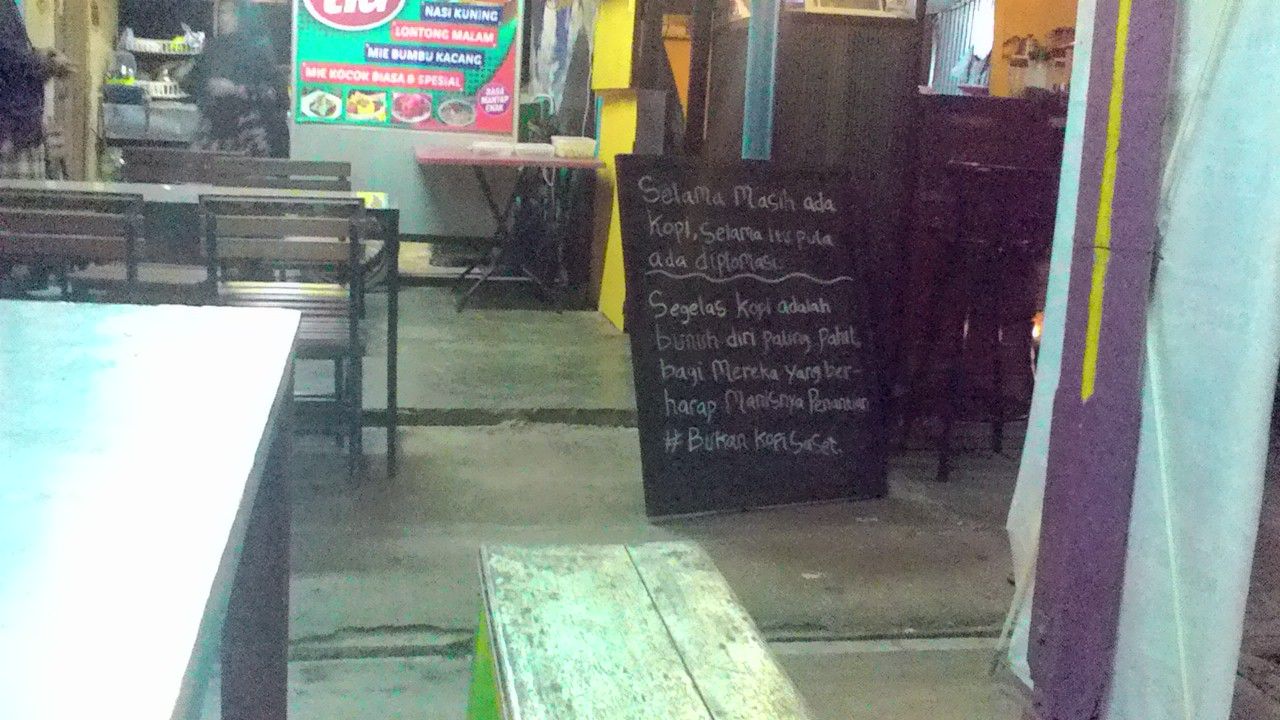 NASI KUNING
LONTONG MALAM
MIE BUMBU KACANG
MIE KOCOK BIASA & SPESIAL
RASA
MANTAP
ENAK
Selama Masih ada
Kopi, Selama itu pula
ada diplomasi.
Segelas Kopi adalah
bunuh diri paling Pahit,
bagi Mereka yang ber-
harap Manisnya Penantian
# Bukan Kopi SaSet.